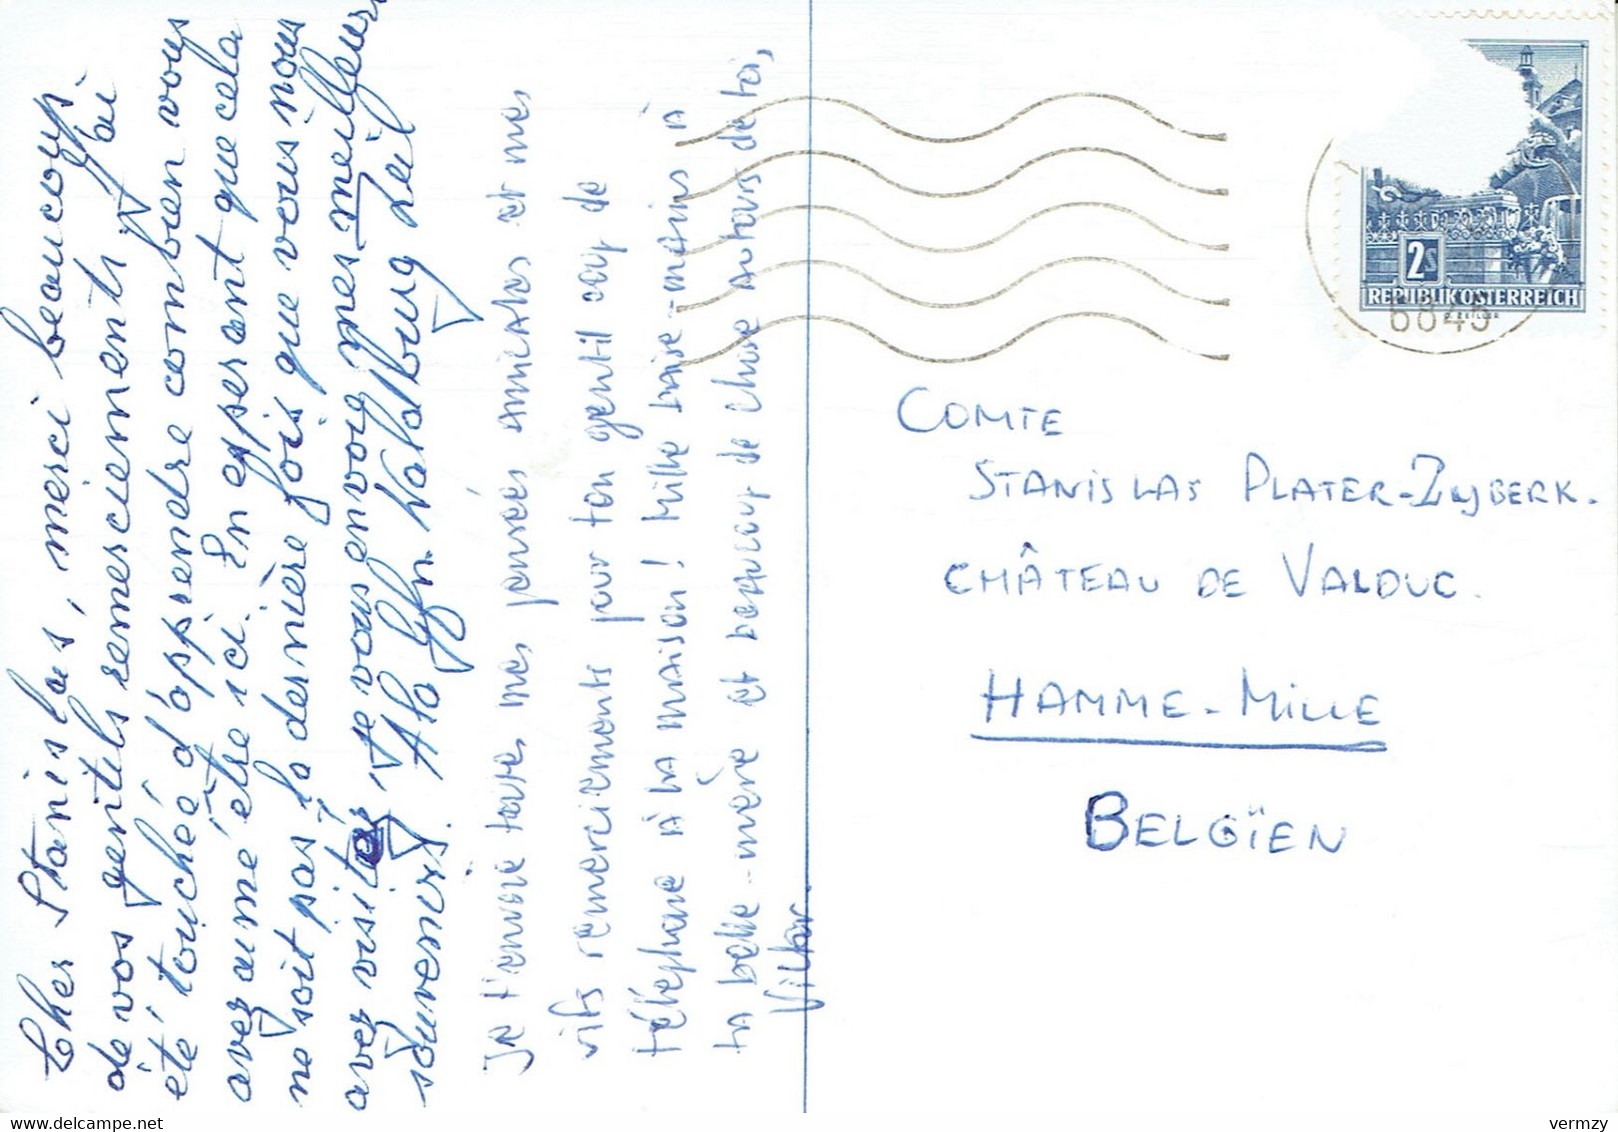 Cher Stanislas, merci beaucoup
de vos gentils remerciements. J'ai
été touchée d'apprendre combien vous
avez aimé être ici. En esperant que cela
ne soit pas la dernière fois que vous nous
avez visités, je vous envoie mes meilleurs
souvenirs. Waldbourg Zeil
Je t'envoie toutes mes pensées amicales et mes
vifs remerciements pour ton gentil coup de
téléphone à la maison ! Mille baise-mains à
ta belle-mère et beaucoup de chose autours de toi,
Viktor.
2S
REPUBLIK ÖSTERREICH
6845
COMTE
STANISLAS PLATER-ZYBERK.
CHÂTEAU DE VALDUC.
HAMME-MILLE
BELGÏEN
delcampe.net
vermzy